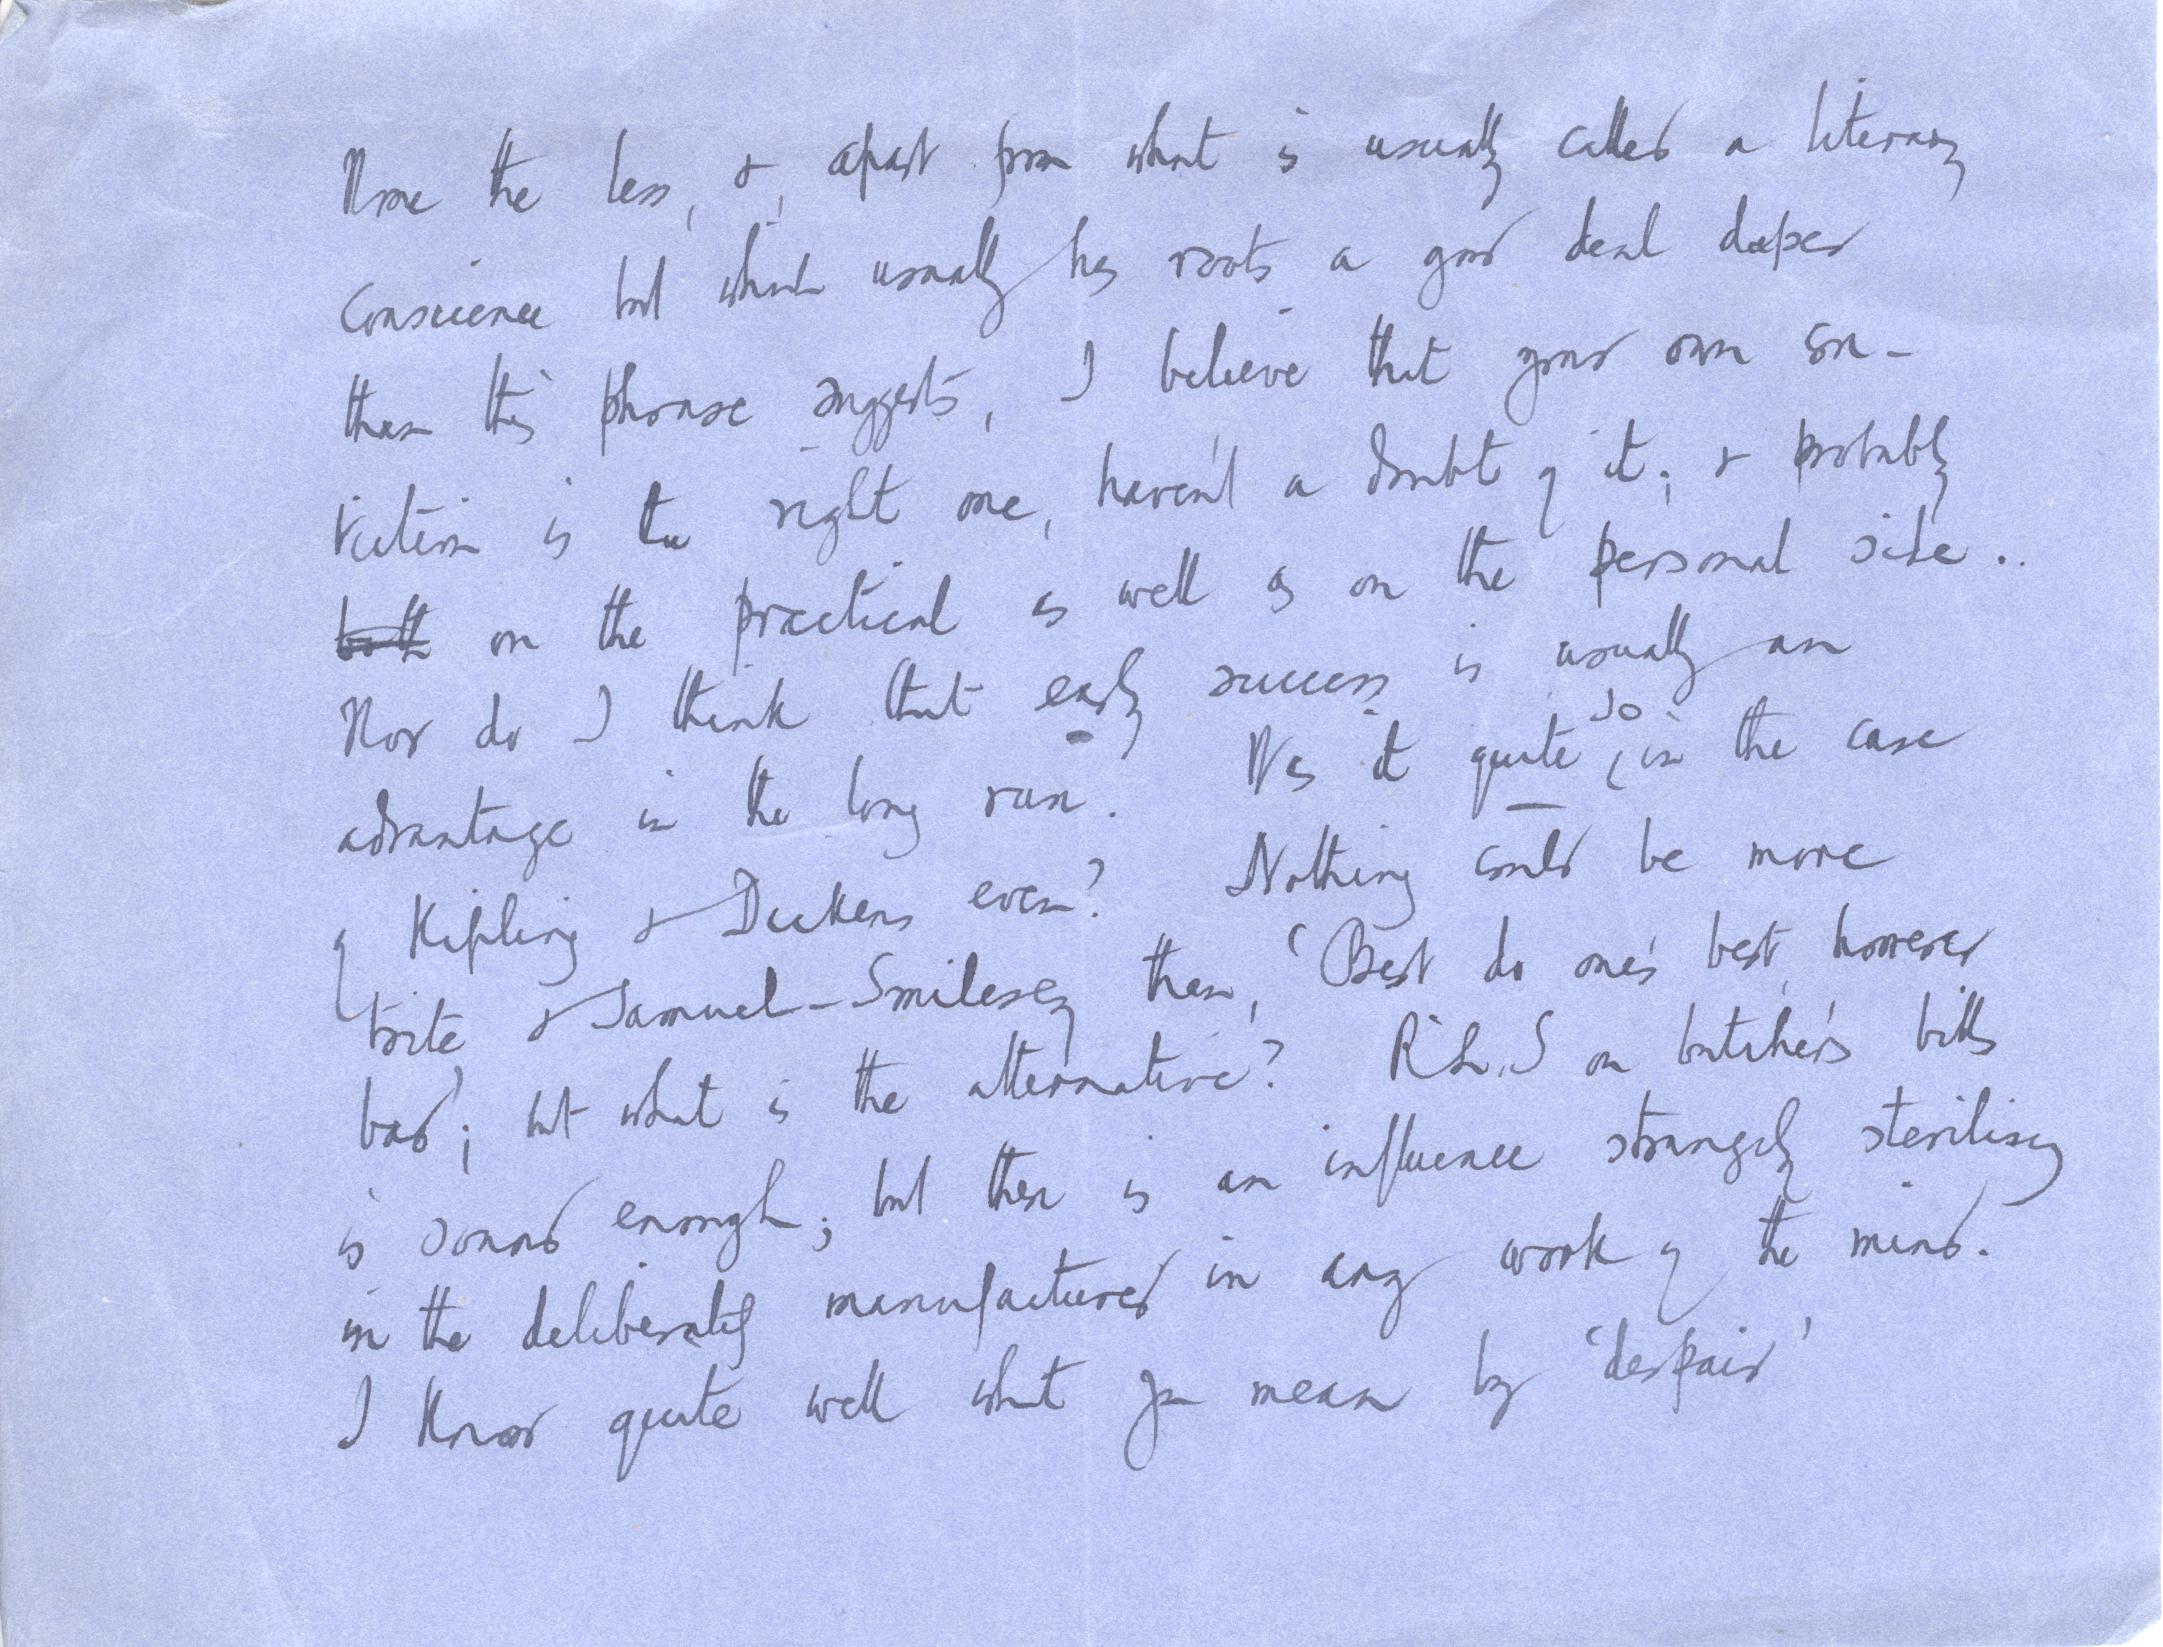 None the less, &, apart from what is usually called a literary
conscience but which usually has roots a good deal deeper
than this phrase suggests, I believe that your own con-
viction is the right one, haven't a doubt of it; & probably
both on the practical as well as on the personal side..
Nor do I think that early success is usually an
advantage in the long run. Was it quite so, in the case
of Kipling & Dickens even? Nothing could be more
trite & Samuel-Smilesey than, 'Best do one's best, however
bad'; but what is the alternative? R.L.S on butcher's bills
is sound enough; but there is an influence strangely sterilising
in the deliberately manufactured in any work of the mind.
I know quite well what you mean by 'despair'